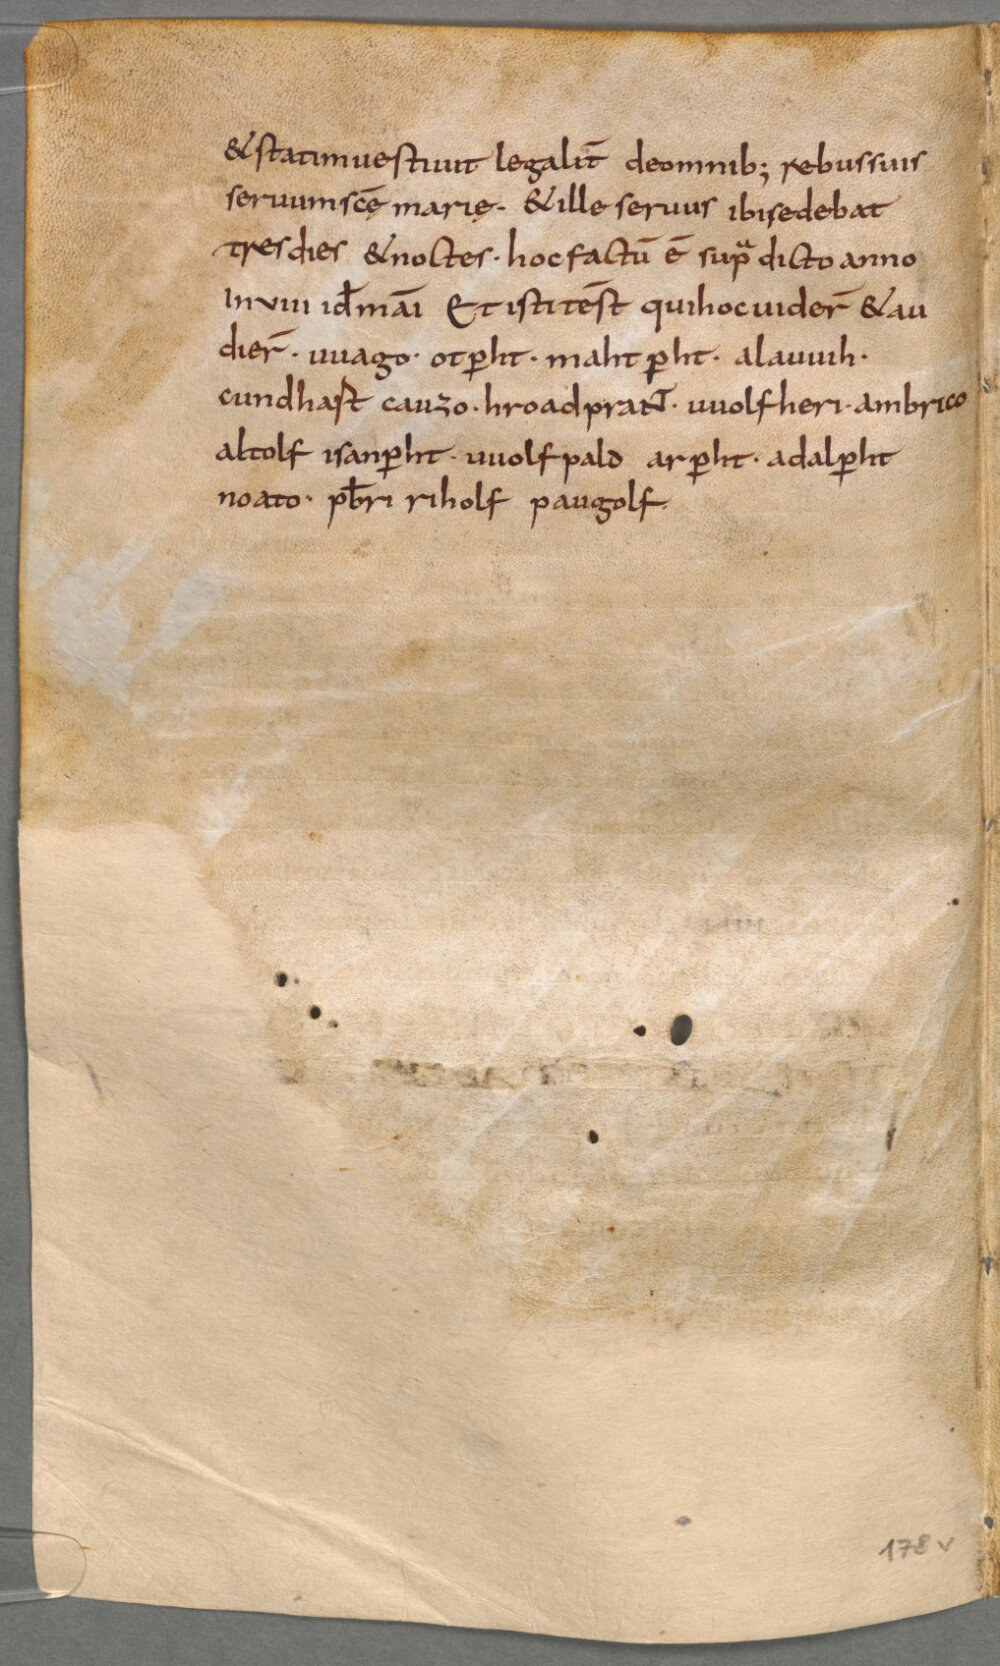 &statimuestiuit legalit̄ deomnib; rebussuis
seruumscę̄ marię. &ille seruus ibisedebat
tresdies &noctes · hocfactū ē sup̄ᵃdicto anno
Inviii id̄ māi Et isti tēst quihocuider̄ &au
dier̄ · uuago · otp̱ht · mahtp̱ht · alauuih ·
cundhast cauzo · hroadprant · uuolfheri · ambrico
altolf isanp̱ht · uuolfpald arp̱ht · adalp̱ht
noato · pb̄ri riholf paugolf.
178 v